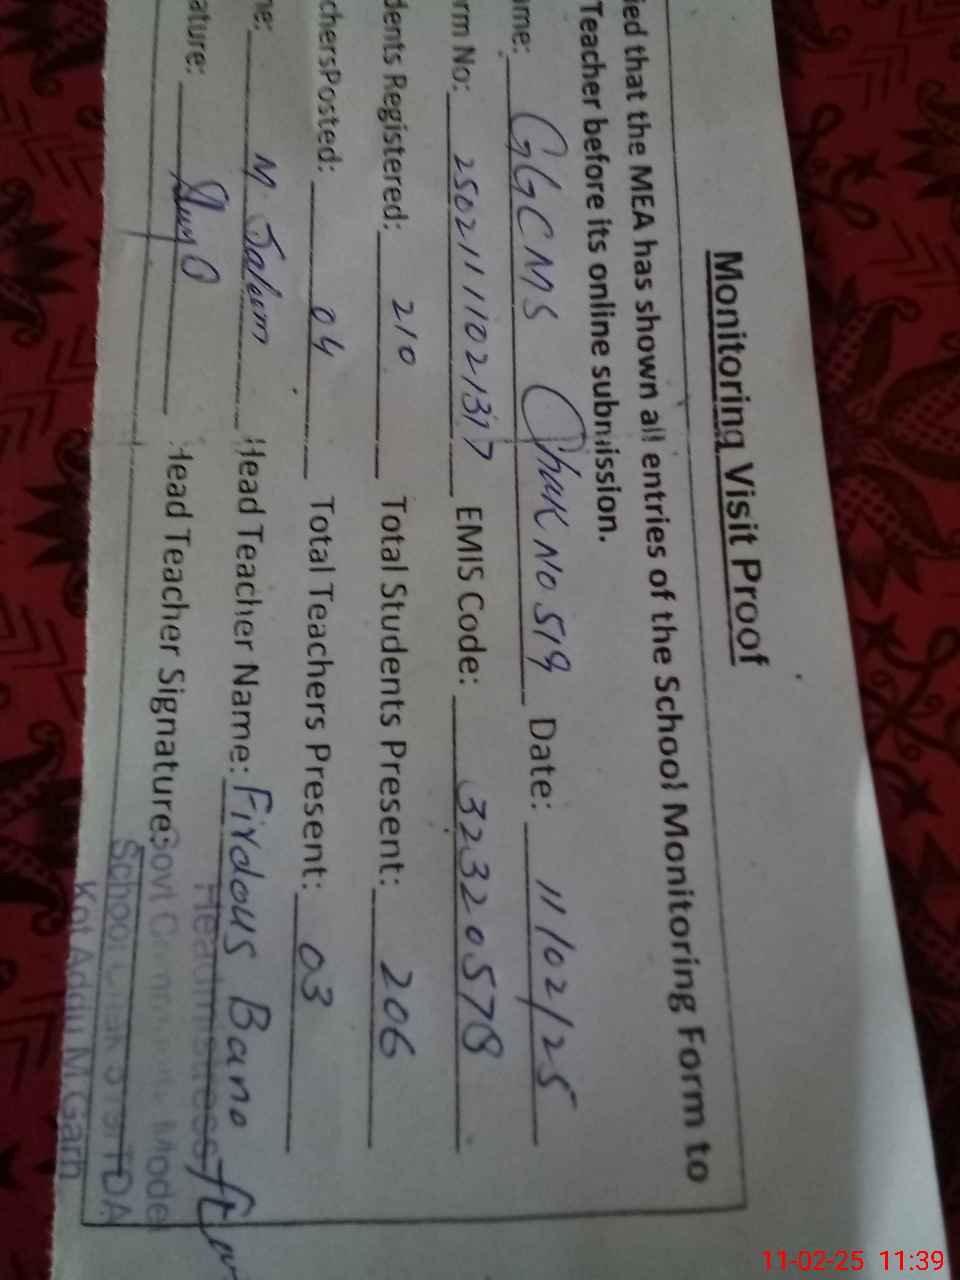 Monitoring Visit Proof
ied that the MEA has shown all entries of the School Monitoring Form to
Teacher before its online submission.
ame: GGCMS Chak No 519 Date: 11/02/25
rm No: 25021111021317 EMIS Code: 32320578
dents Registered: 210 Total Students Present: 206
chersPosted: 04 Total Teachers Present: 03
ne: M. Saleem Head Teacher Name: Firdous Bano
ature: Head Teacher Signature:
Headmistress
Govt Model
School Chak 519/TDA
Kot Addu M.Garh
11-02-25 11:39